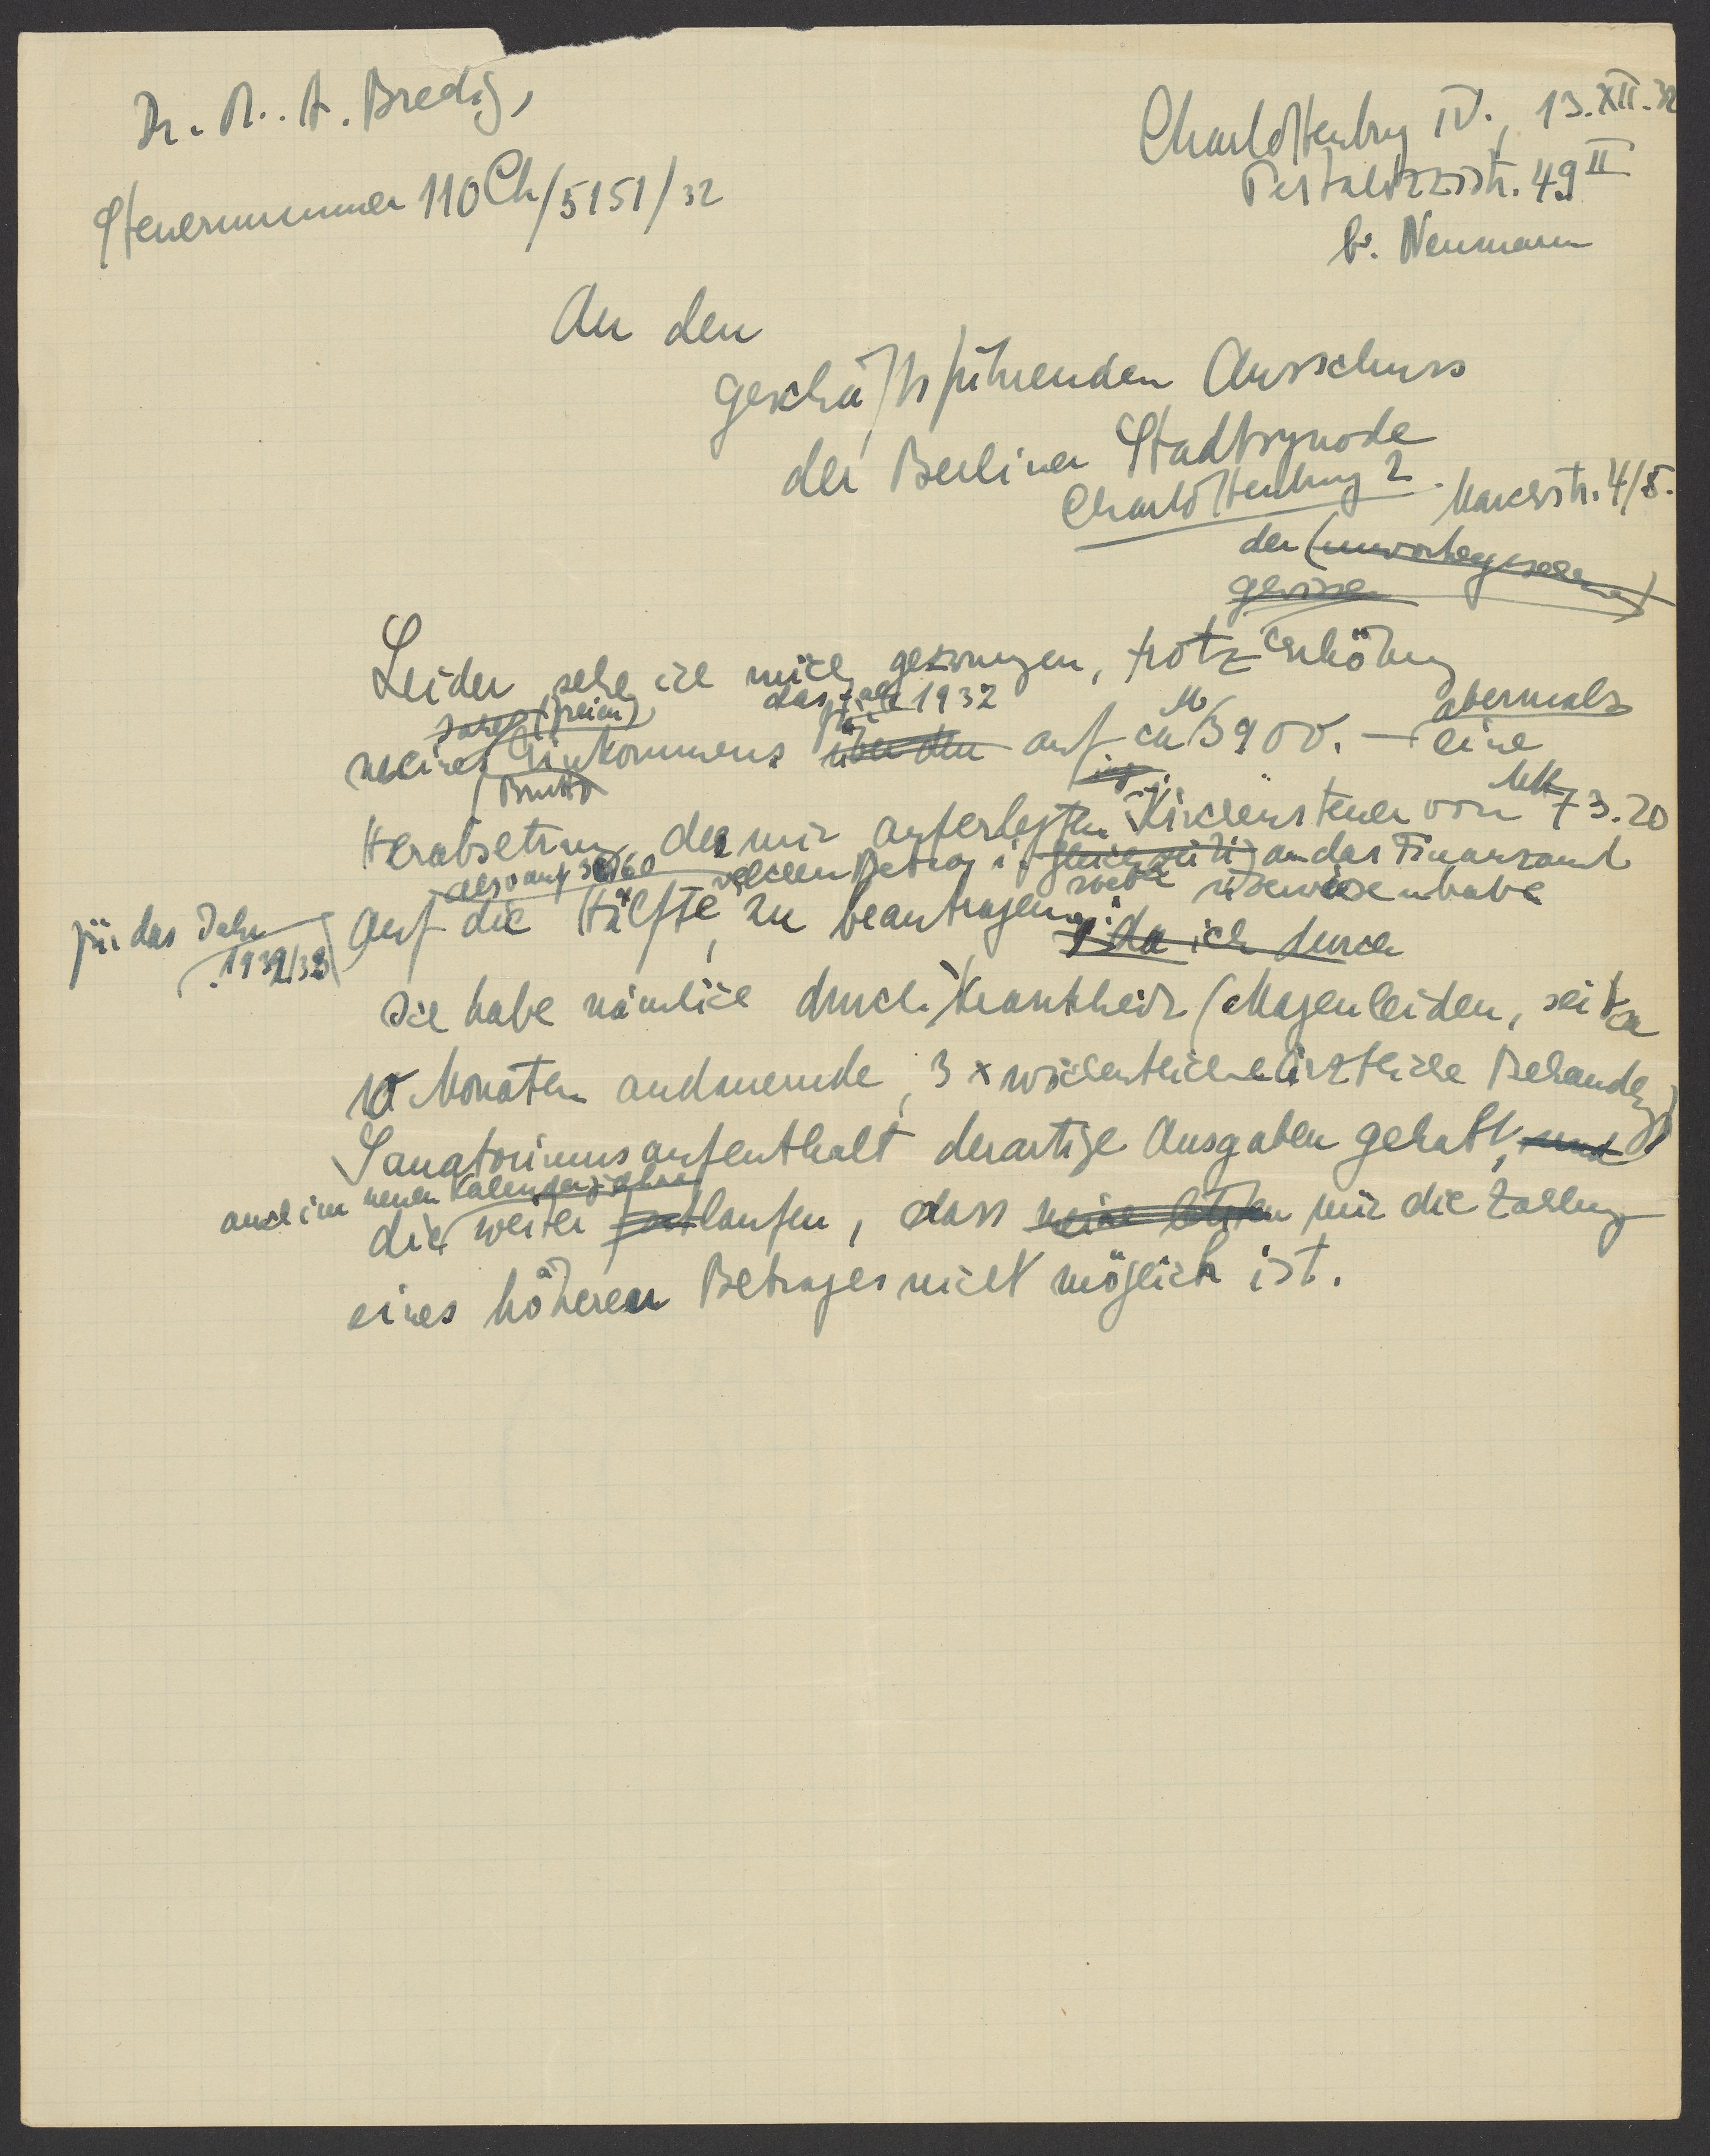 Dr. M. A. Bredig,
Steuernummer 110 Ch/5151/32
Charlottenburg IV., 13.XII.32
Pestalozzistr. 49 II
b. Neumann
An den
geschäftsführenden Ausschuss
der Berliner Stadtsynode
Charlottenburg 2. Marchstr. 4/5.
der
gewissen
Leider sehe ich mich gezwungen, trotz Erhöhung
das Jahr 1932
für
abermals
meines Einkommens über den auf ca M 3900.— eine
Brutto
Herabsetzung der mir auferlegten Kirchensteuer von Mk 73.20
also auf 36,60 welchen Betrag i. gleichzeitig an das Finanzamt
überwiesen habe
für das Jahr
1932/33
auf die Hälfte, zu beantragen, da ich durch
Ich habe nämlich durch Krankheit (Magenleiden, seit ca
10 Monaten andauernde, 3 x wöchentliche ärztliche Behandlg)
Sanatoriumsaufenthalt derartige Ausgaben gehabt, und
auch im neuen Kalenderjahre
die weiter fortlaufen, dass meine mir die Zahlung
eines höheren Betrages nicht möglich ist.